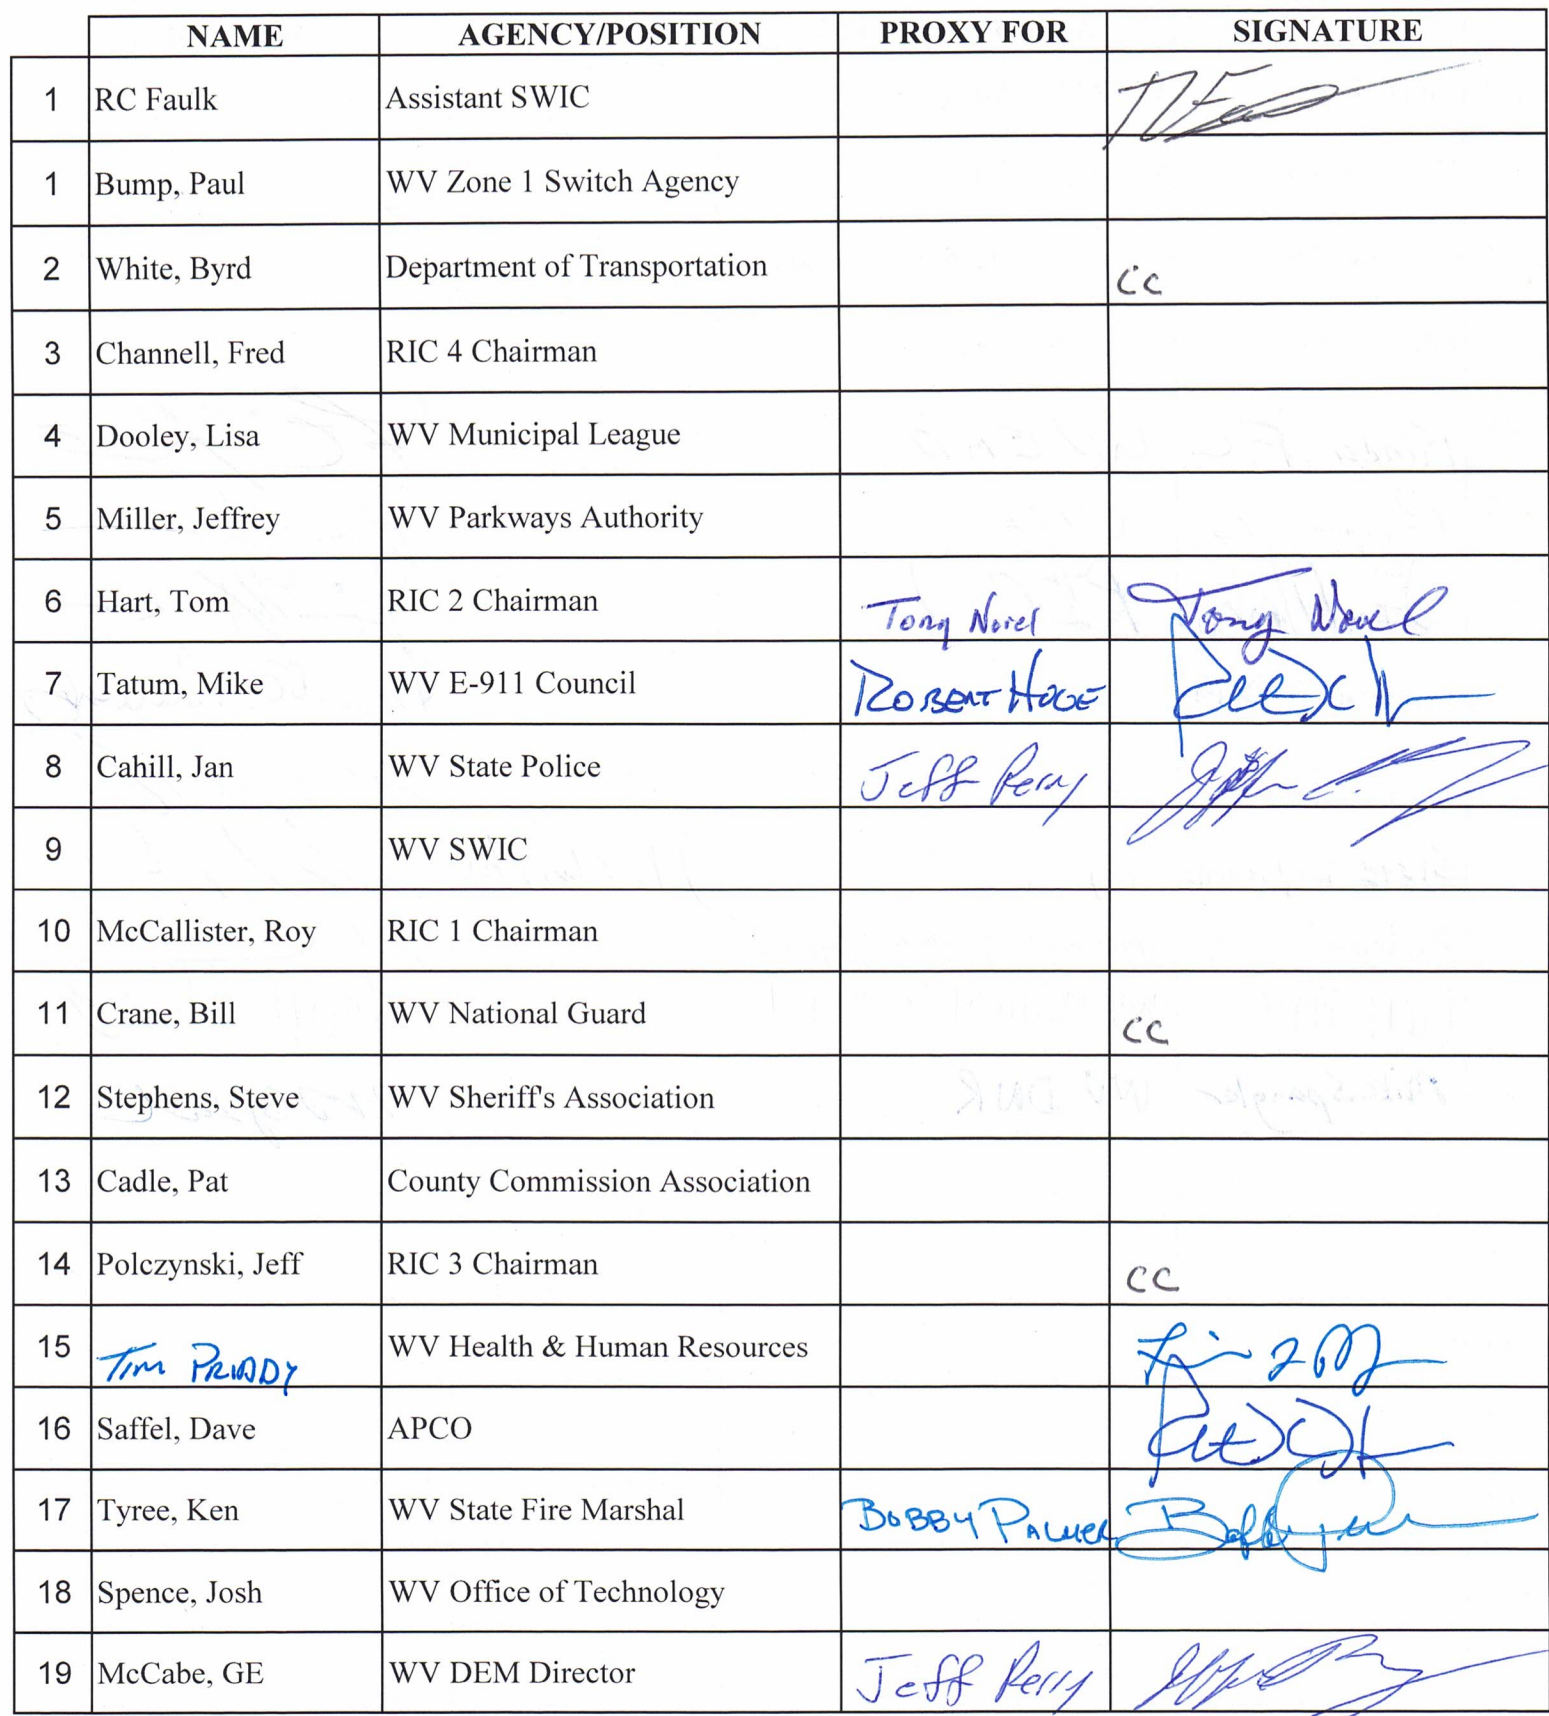 NAME AGENCY/POSITION PROXY FOR SIGNATURE
1 RC Faulk Assistant SWIC
1 Bump, Paul WV Zone 1 Switch Agency
2 White, Byrd Department of Transportation CC
3 Channell, Fred RIC 4 Chairman
4 Dooley, Lisa WV Municipal League
5 Miller, Jeffrey WV Parkways Authority
6 Hart, Tom RIC 2 Chairman Tony Tony
7 Tatum, Mike WV E-911 Council ROBERT HOGE
8 Cahill, Jan WV State Police Jeff Perry
9 WV SWIC
10 McCallister, Roy RIC 1 Chairman
11 Crane, Bill WV National Guard CC
12 Stephens, Steve WV Sheriff's Association
13 Cadle, Pat County Commission Association
14 Polczynski, Jeff RIC 3 Chairman CC
15 TIM PRIDDY WV Health & Human Resources
16 Saffel, Dave APCO
17 Tyree, Ken WV State Fire Marshal BOBBY PALMER
18 Spence, Josh WV Office of Technology
19 McCabe, GE WV DEM Director Jeff Perry